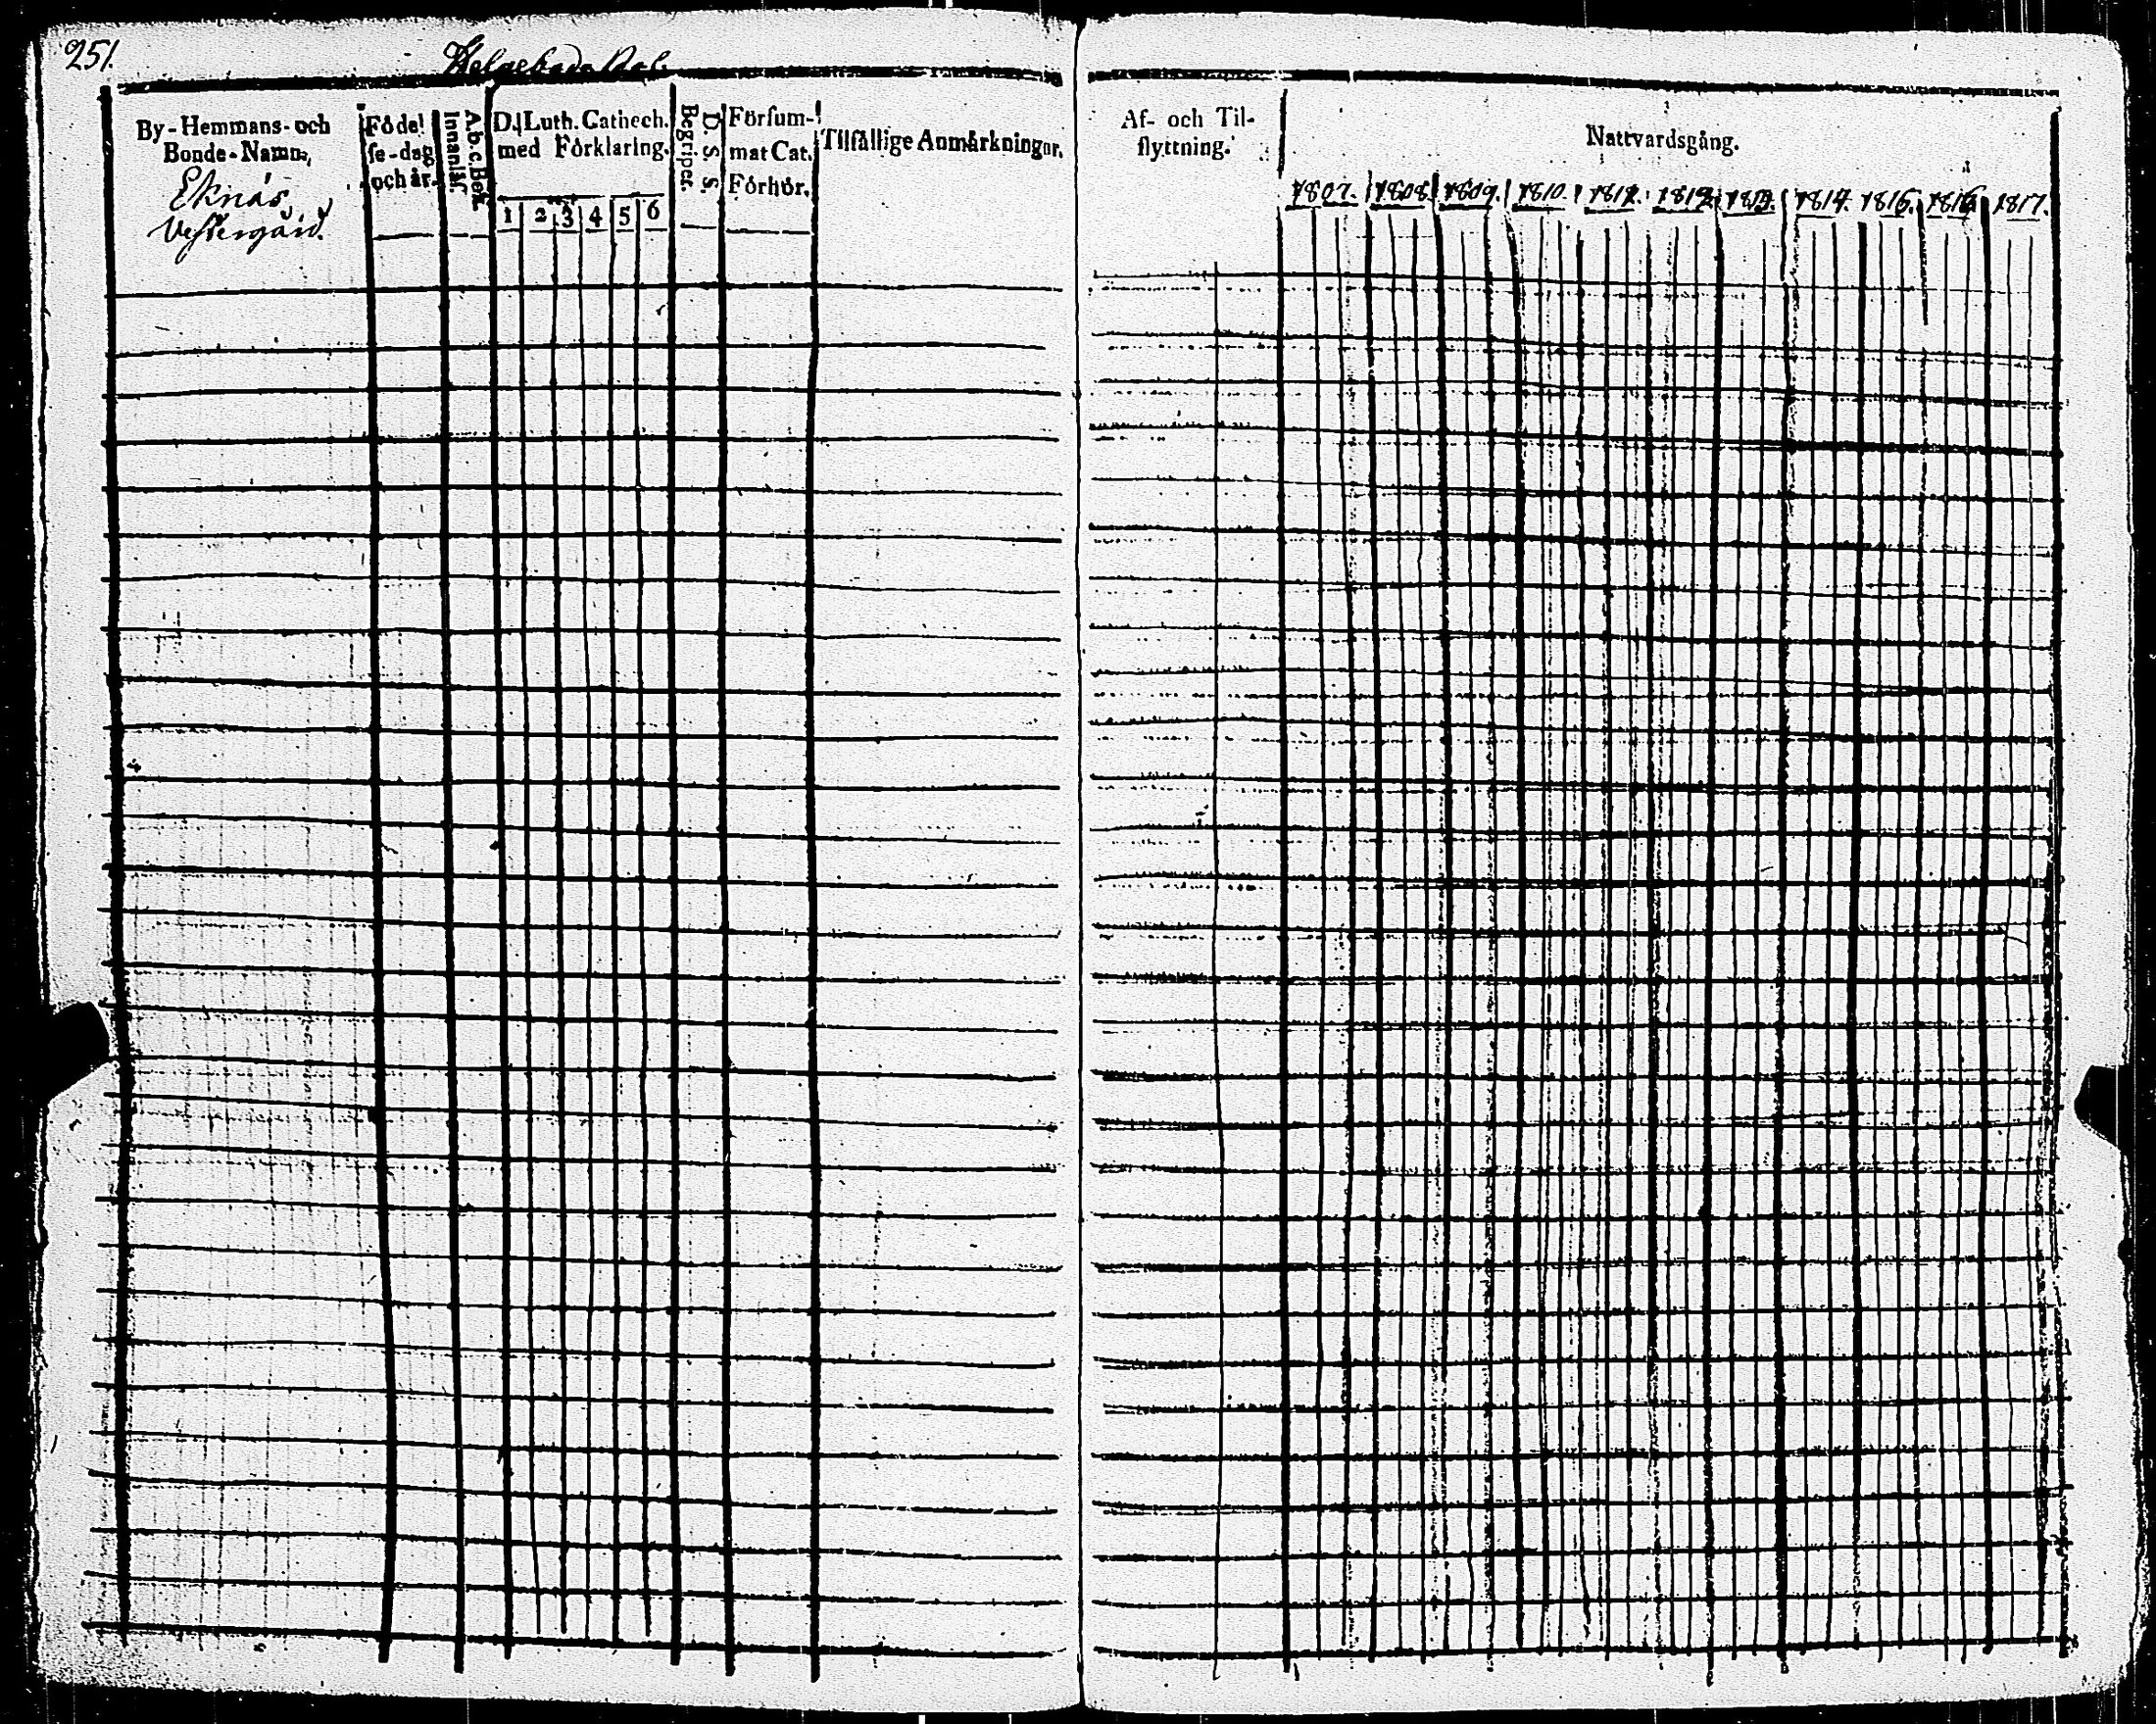 251.
By-Hemmans- och
Bonde-Namn,
Eknäs
Vestergård.
Föde!
se-dag
och år.
A.b.c. Bok
Innanläs.
D. Luth. Cathech.
med Förklaring.
1 2 3 4 5 6
D. S. S.
Begriper.
Försum-
mat Cat.
Förhör.
Tilfällige Anmärkningar.
Af- och Til-
flyttning.
Nattvardsgång.
1807. 1808. 1809. 1810. 1811. 1812. 1813. 1814. 1815. 1816. 1817.